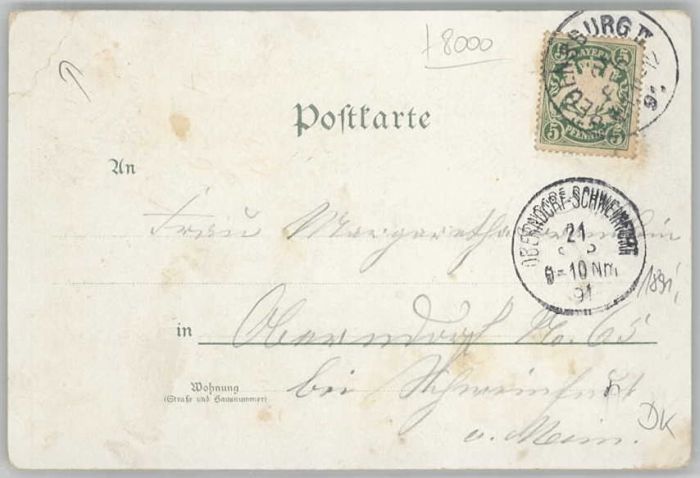 /8000
BAYERN
5 5
5 PFENNIG 5
Postkarte
An
OBERNDORF-SCHWEINFURT
21
9-10 Nm
91
Frau Margaretha
1891
in Oberndorf No. 65
Wohnung
(Straße und Hausnummer)
bei Schweinfurt
a. Main.
DK